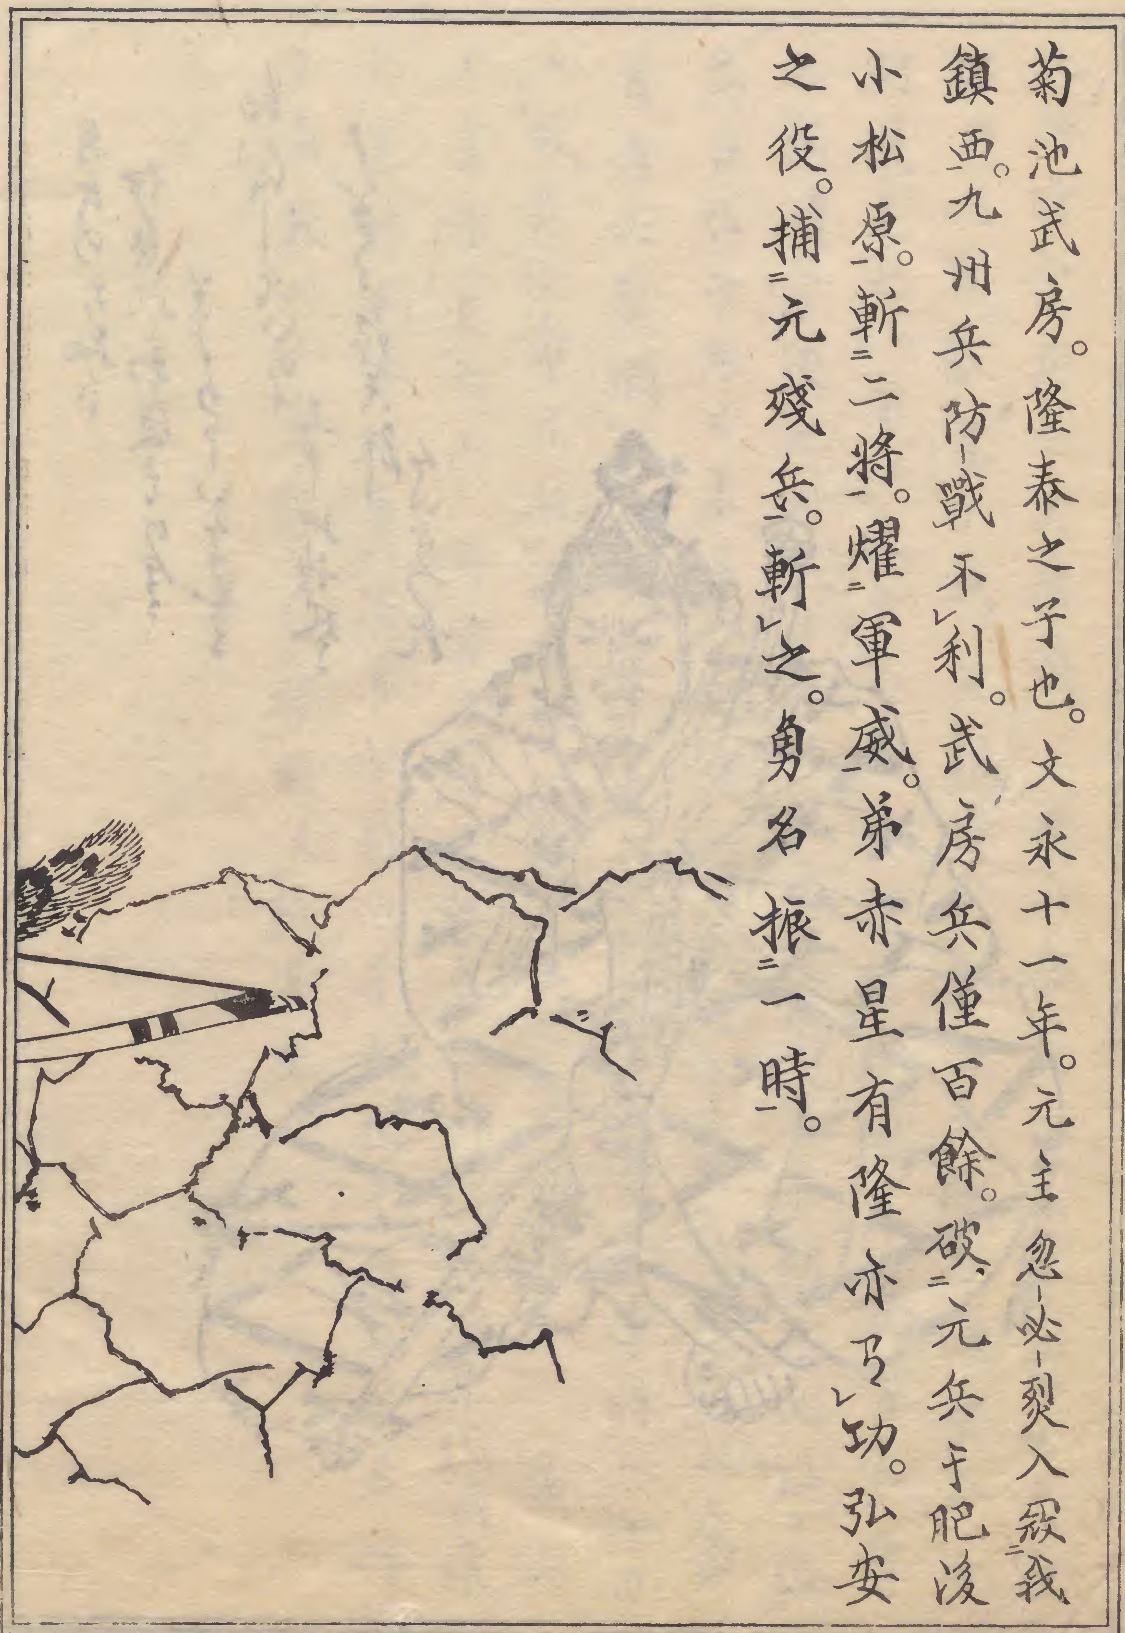 菊池武房。隆泰之子也。文永十一年。元主忽-必-烈入寇㆓我
鎮西㆒。九州兵防-戰不㆑利。武房兵僅百餘。破㆓元兵于肥後
小松原㆒。斬㆓二將㆒。燿㆓軍威㆒。弟赤星有隆亦有㆑功。弘安
之役。捕㆓元殘兵㆒。斬㆑之。勇名振㆓一時㆒。